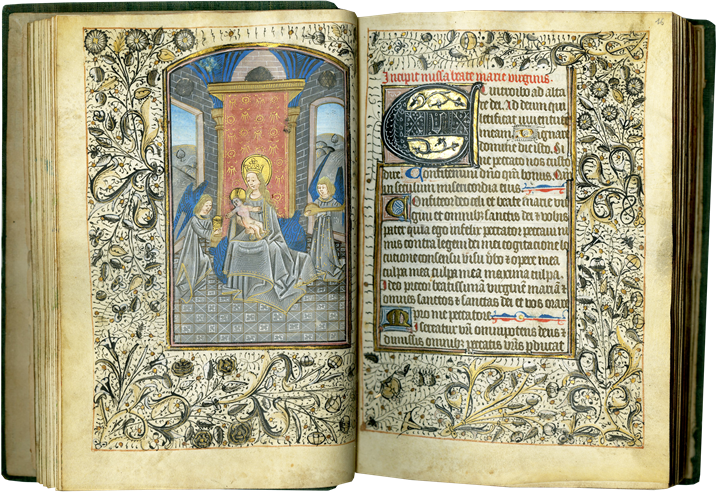 16
Incipit missa beate marie virginis.
Et introibo ad altare
dei. Ad deum qui
letificat iuventutem
meam. Dignare
domine die isto. Si
ne peccato nos custo
dire. Confitemini dno qm bonus. Qm
in seculum misericordia eius.
Confiteor deo celi et beate marie vir
gini et omnibz sanctis dei et vobis
pater quia ego infelix peccator peccavi ni
mis contra legem dei mei cogitacione lo
cutione consensu visu vbo et opere mea
culpa mea culpa mea maxima culpa.
Ideo precor beatissimam virginem mariam et
omnes sanctos et sanctas dei et vos orare
pro me peccatore
Misereatur vri omnipotens deus et
dimissis omnibz peccatis vris pducat